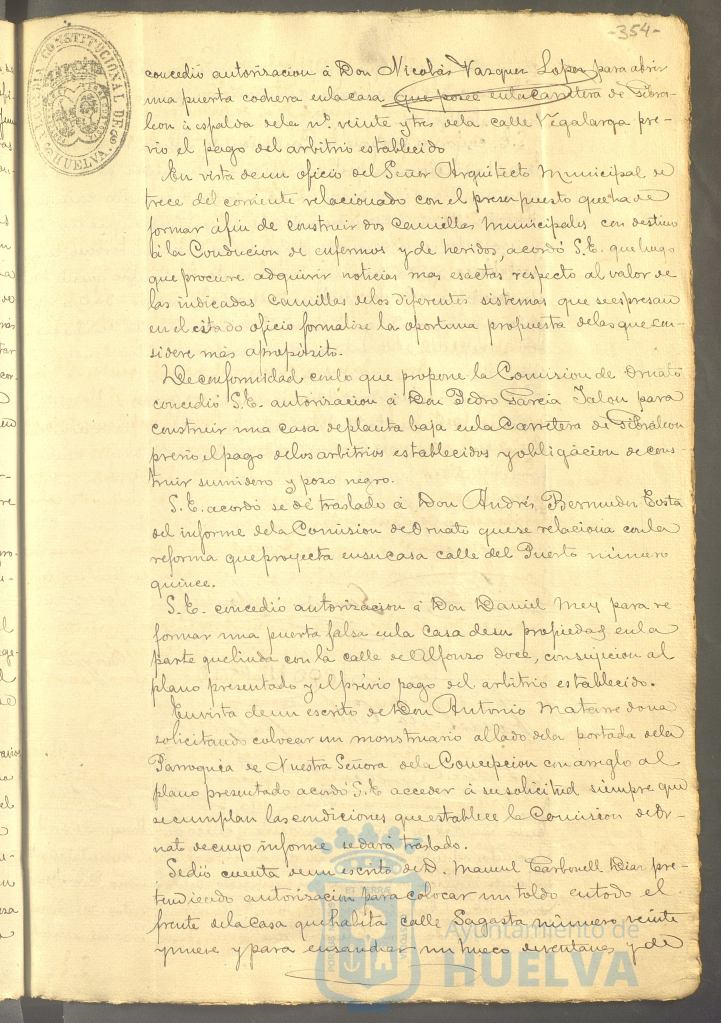 -354-
ALCALDIA CONSTITUCIONAL DE HUELVA.
concedió autorizacion á Don Nicolás Vazquez Lopez para abrir
una puerta cochera en la casa que posee en la Carretera de Gibra-
leon á espalda de la nº. veinte y tres de la calle Vegalarga pre-
vio el pago del arbitrio establecido
En vista de un oficio del Señor Arquitecto Municipal de
trece del corriente relacionado con el presupuesto que ha de
formar á fin de construir dos Camillas Municipales con destino
á la Conducion de enfermos y de heridos, acordó S.E. que luego
que procure adquirir noticias mas esactas respecto al valor de
las indicadas Camillas de los diferentes sistemas que se espresan
en el citado oficio formalize la oportuna propuesta de las que con-
sidere más apropósito.
De conformidad con lo que propone la Comision de Ornato
concedió S.E. autorizacion á Don Pedro Garcia Jalon para
construir una casa de planta baja en la Carretera de Gibraleon
previo el pago de los arbitrios establecidos y obligacion de cons-
truir sumidero y pozo negro.
S.E. acordó se dé traslado á Don Andrés Bermudez Costa
del informe de la Comision de Ornato que se relaciona con la
reforma que proyecta en su casa calle del Puerto número
quince.
S.E. concedió autorizacion á Don Daniel Mey para re
formar una puerta falsa en la casa de su propiedad en la
parte que linda con la calle de Alfonso doce, con sujecion al
plano presentado y el prévio pago del arbitrio establecido.
En vista de un escrito de Don Antonio Matarredona
solicitando colocar un monstruario al lado de la portada de la
Parroquia de Nuestra Señora de la Concepcion con arreglo al
plano presentado acordó S.E. acceder á su solicitud siempre que
se cumplan las condiciones que establece la Comision de Or-
nato de cuyo informe se dará traslado.
Se dió cuenta de un escrito de D. Manuel Carbonell Diaz pre-
tendiendo autorizacion para colocar un toldo en todo el
frente de la casa que habita calle Sagasta número veinte
y nueve y para ensanchar un hueco de ventana y de
Ayuntamiento de
HUELVA